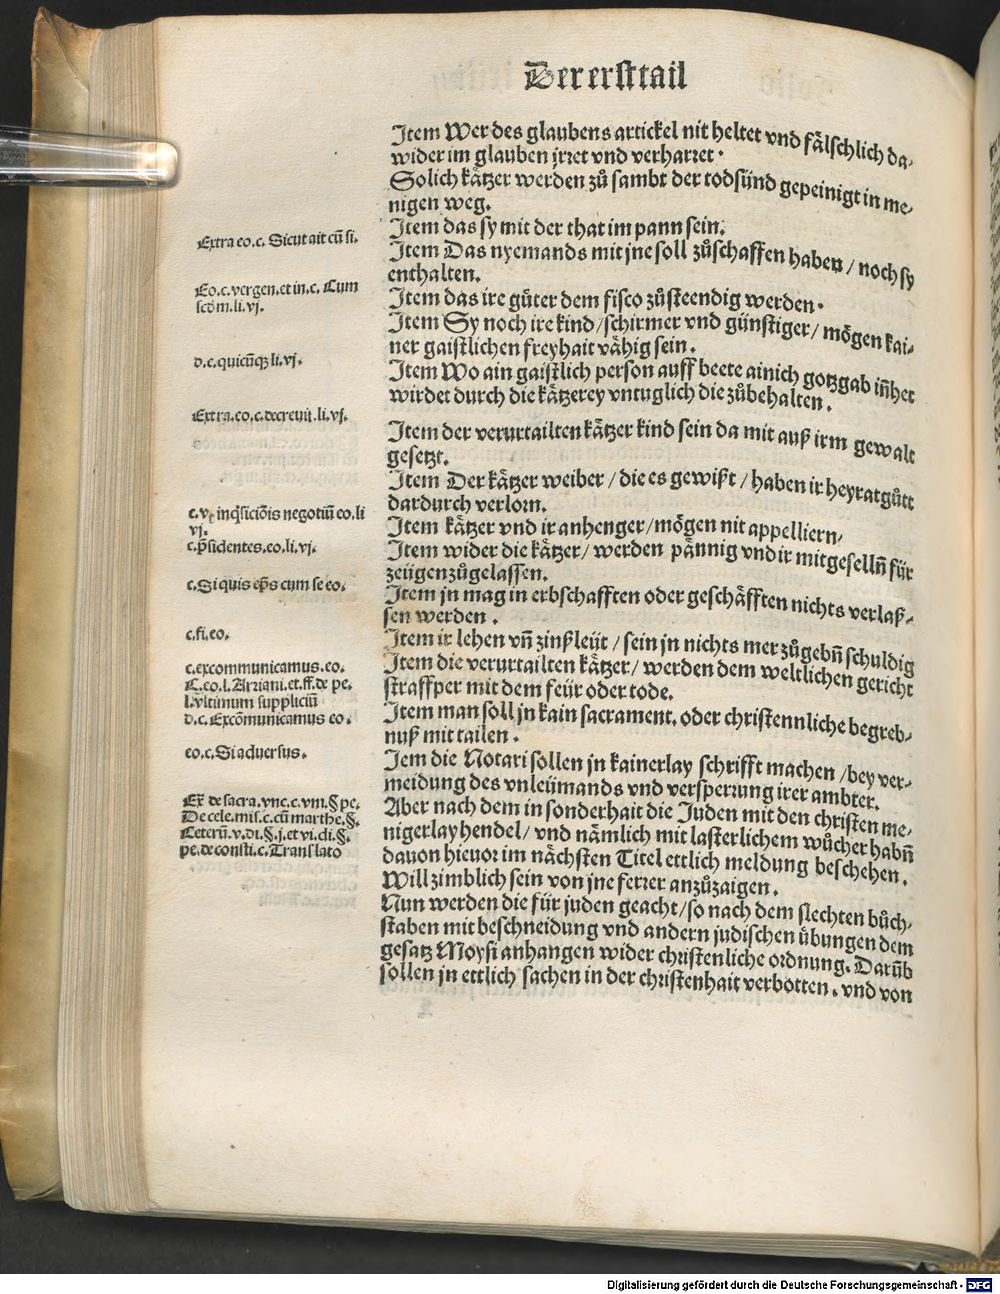 Der erst tail
Item Wer des glaubens artickel nit heltet vnd fälschlich da-
wider im glauben jrret vnd verharret.
Solich kätzer werden zů sambt der todsünd gepeinigt in me-
nigen weg.
Item das sy mit der that im pann sein.
Extra eo.c. Sicut ait cū si.
Item Das nyemands mit jne soll zůschaffen haben / noch sy
enthalten.
Eo.c.vergen.et in.c. Cum
scōm.li.vj.
Item das ire güter dem fisco zůsteendig werden.
Item Sy noch ire kind / schirmer vnd günstiger / mögen kai-
ner gaistlichen freyhait vähig sein.
d.c.quicūqꝫ li.vj.
Item Wo ain gaistlich person auff beete ainich gotzgab iñhet
wirdet durch die kätzerey vntuglich die zůbehalten.
Extra.eo.c.decreuit.li.vj.
Item der verurtailten kätzer kind sein da mit auß irm gewalt
gesetzt.
Item Der kätzer weiber / die es gewißt / haben ir heyratgůtt
dardurch verlorn.
c.vt inq̄siciōis negotiū eo.li
vj.
Item kätzer vnd ir anhenger / mögen nit appelliern,
c.p̄sidentes.eo.li.vj.
Item wider die kätzer / werden pännig vnd ir mitgeselln̄ für
zeügen zůgelassen.
c.Si quis ep̄s cum se eo.
Item jn mag in erbschafften oder geschäfften nichts verlaß-
sen werden.
c.fi.eo.
Item ir lehen vn̄ zinßleüt / sein jn nichts mer zůgebn̄ schuldig
c.excommunicamus.eo.
Item die verurtailten kätzer / werden dem weltlichen gericht
straffper mit dem feür oder tode.
C.eo.l.Arriani.et.ff.de pe.
l.vltimum suppliciū
Item man soll jn kain sacrament. oder christennliche begreb-
nuß mit tailen.
d.c.Excōmunicamus eo.
eo.c.Si aduersus.
Jem die Notari sollen jn kainerlay schrifft machen / bey ver-
meidung des vnleümands vnd versperrung irer ambter.
Ex̄ de sacra.vnc.c.vni.§ pe.
De cele.mis.c.cū marthe.§.
Ceterū.v.di.§.j.et vi.di.§.
pe.de consti.c.Translato
Aber nach dem in sonderhait die Juden mit den christen me-
nigerlay hendel / vnd nämlich mit lasterlichem wůcher habn̄
dauon hieuor im nächsten Titel ettlich meldung beschehen.
Will zimblich sein von jne ferrer anzůzaigen.
Nun werden die für juden geacht / so nach dem slechten bůch-
staben mit beschneidung vnd andern judischen übungen dem
gesatz Moysi anhangen wider christenliche ordnung. Darūb
sollen jn ettlich sachen in der christenhait verbotten. vnd von
Digitalisierung gefördert durch die Deutsche Forschungsgemeinschaft - DFG